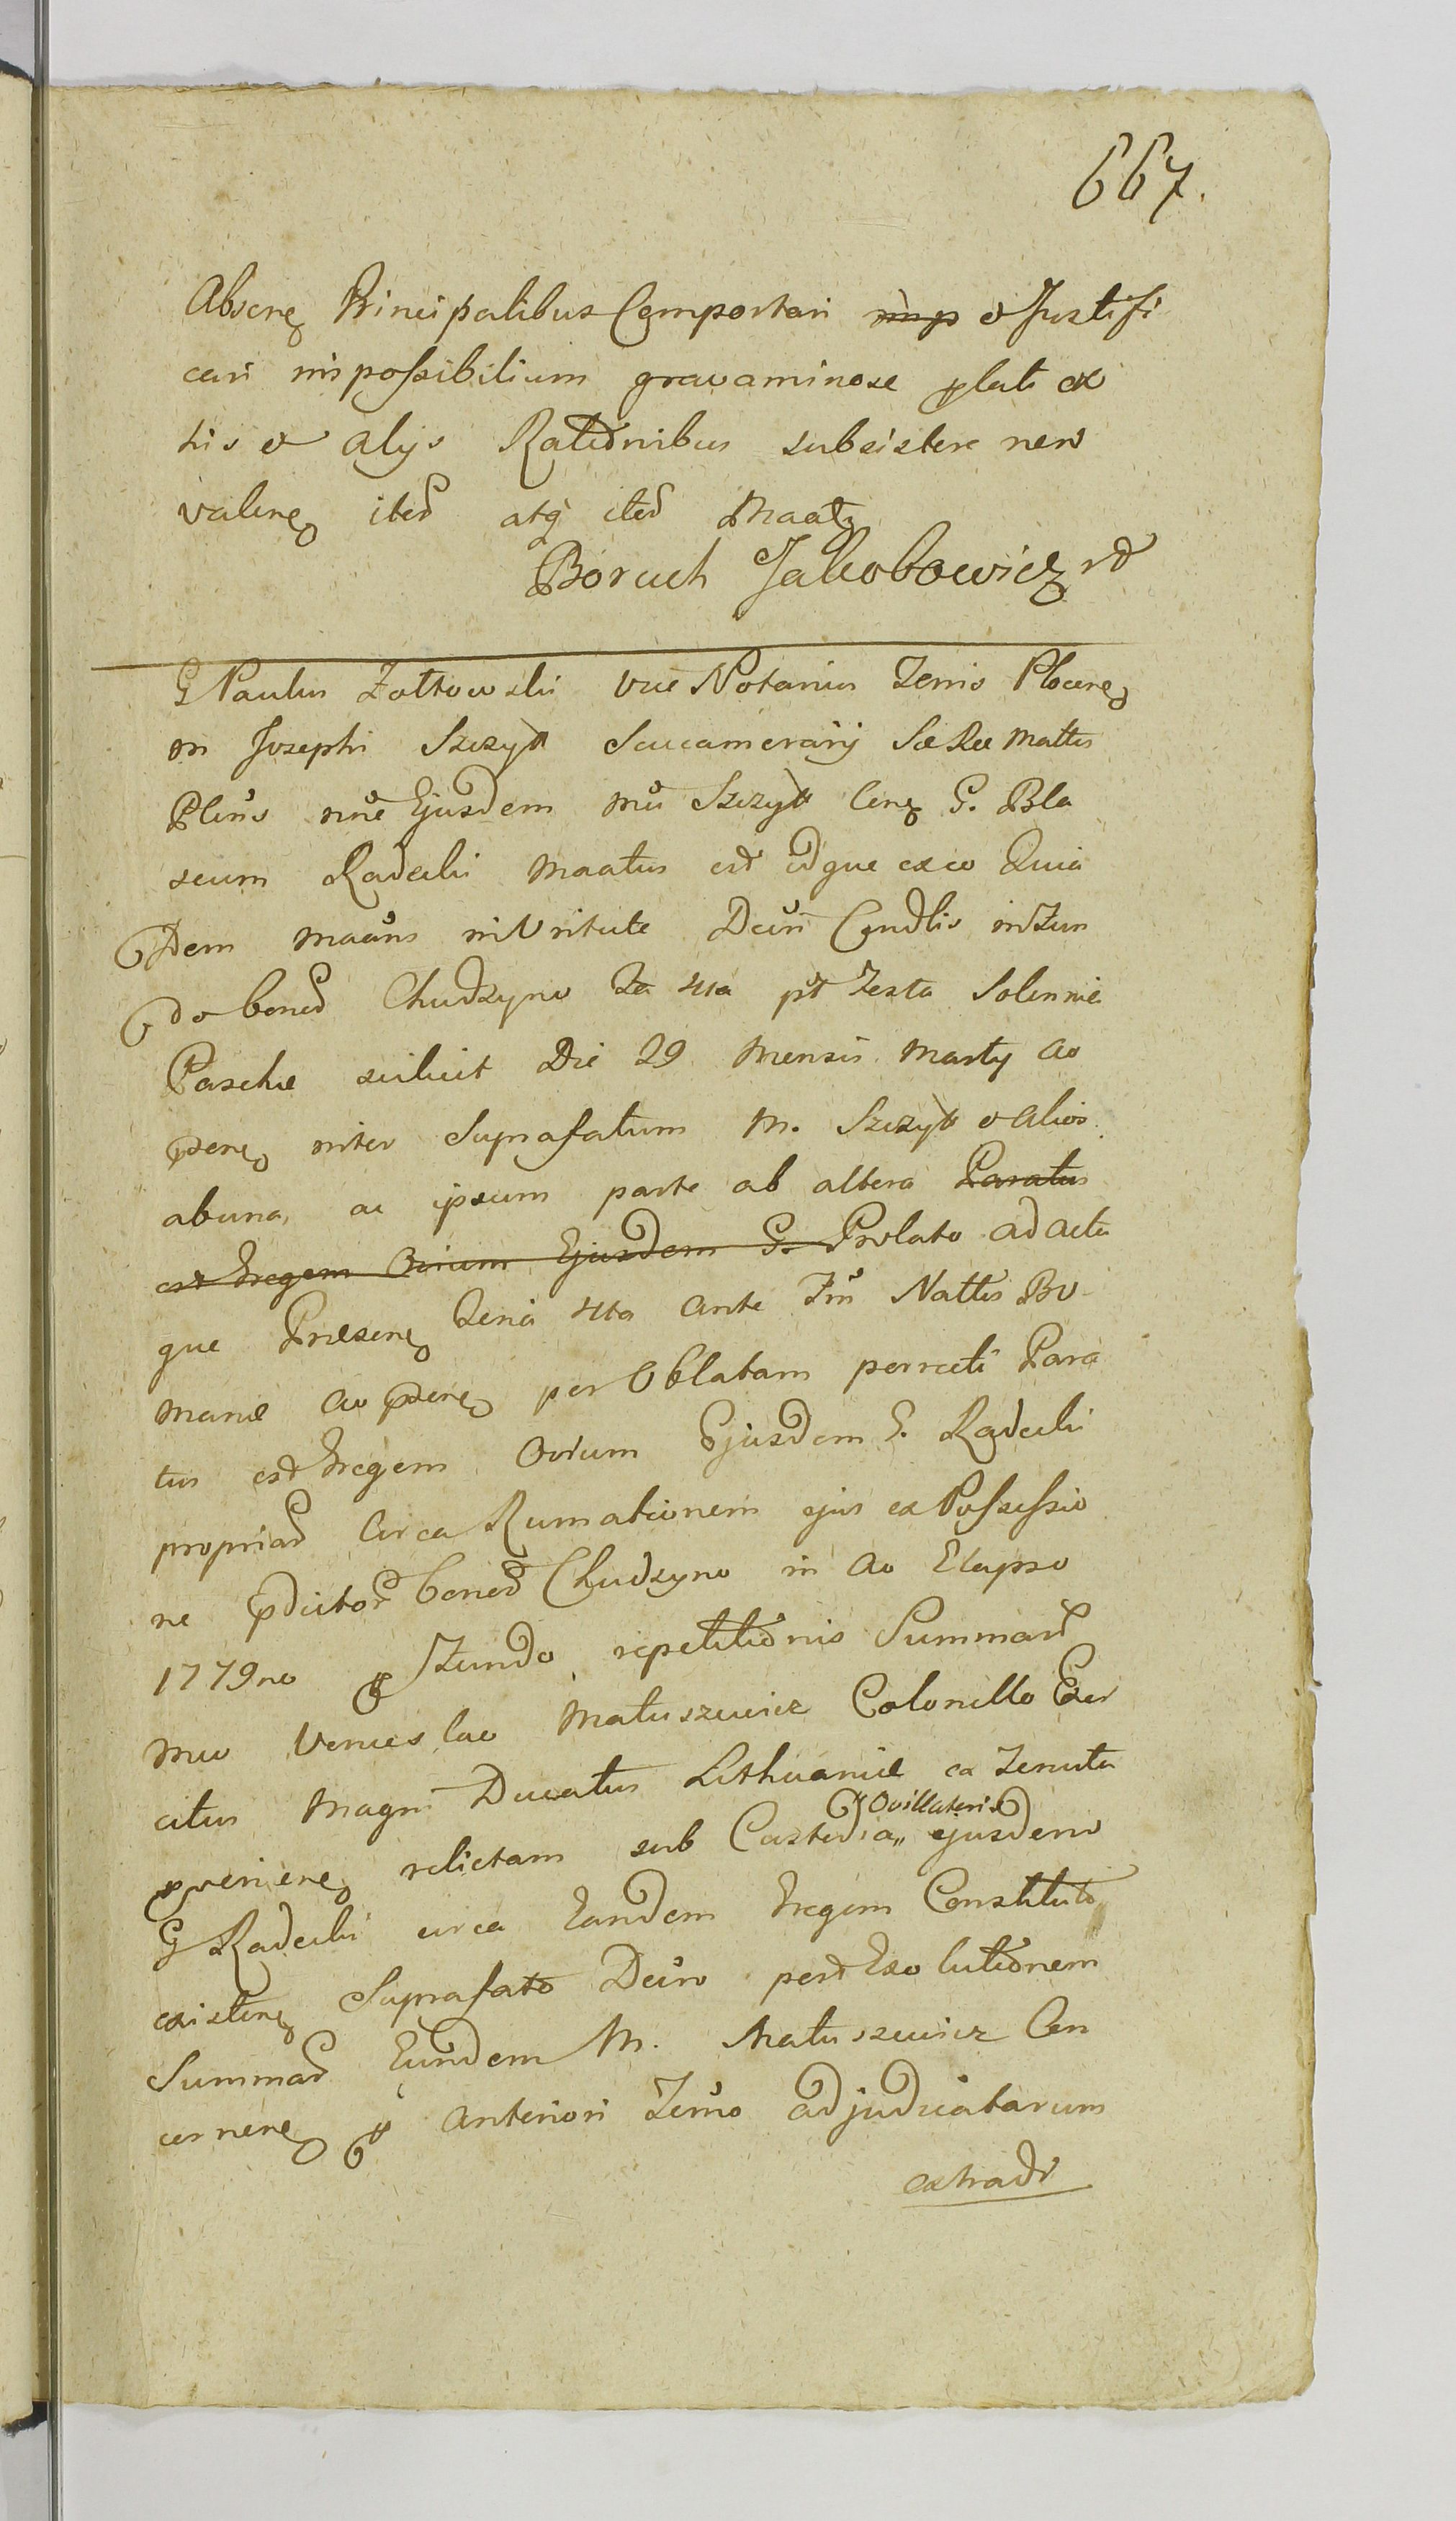 667.
Absenę Principalibus Comportari imp et Justifi
cari impossibilium gravaminose plati ex
his et alys Rationibus subsistere non
valenę iteð atq iteð Maatꝫ
Boruch Jakobowicz
G Paulus Zołtowski Vice Notarius Zenis Plocenę
M Josephi Szczytt Succamerarij SæRæ Mattis
Plenus nõe Ejusdem mci Szczytt Cenę G. Bla
seum Radecki Maatus est idque ex eo Quia
Idem Maaus in Vritute Decri Condlis in
do bonoð Chudzyno Za 4ta pt Festa Solennia
Paschæ scilicet Die 29 Mensis Marty ao
psenę inter Suprafatum M. Szczytt et alios
abuna, ac ipsum parte ab altera Paratus
est Gregem Ovium Ejusdem G. Prolato ad acta
que Præsenę Feria 4ta ante Fm Nattis BV
Mariæ ao psenę per Oblatam perrecti Para
tus est Gregem Ovium Ejusdem G. Radecki
propriað Circa Rumationem ejus ex Possessio
ne pdictoð bonoð Chudzyno in ao Elapso
1779no repetitionis Summarð
mco Venceslao Matuszewicz Colonello Exer
citus Magni Ducatus Lithuaniæ ex Tenuta
pvenienę relictam sub Custodia „ ejusdem
„ Ovillatoris
G Radecki circa Eandem Gregem Constituto
existenę Suprafato Decro post Exolutionem
Summað Eundem M. Matuszewicz Con
cernenę p anteriori Termo adjudicatarum
extradi